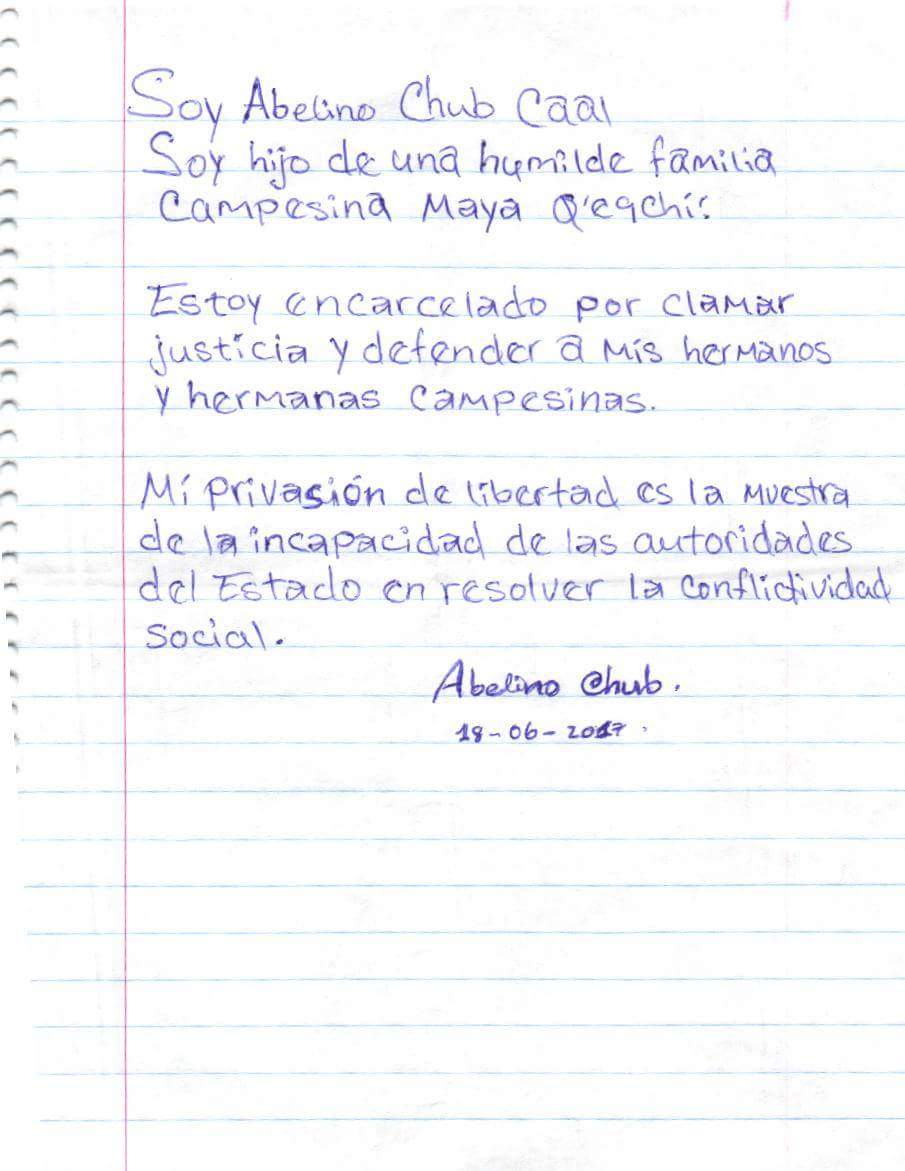 Soy Abelino Chub Caal
Soy hijo de una humilde familia
Campesina Maya Q'eqchi'.
Estoy encarcelado por clamar
justicia y defender a mis hermanos
y hermanas campesinas.
Mi privasión de libertad es la muestra
de la incapacidad de las autoridades
del Estado en resolver la conflictividad
social.
Abelino Chub.
18-06-2017.